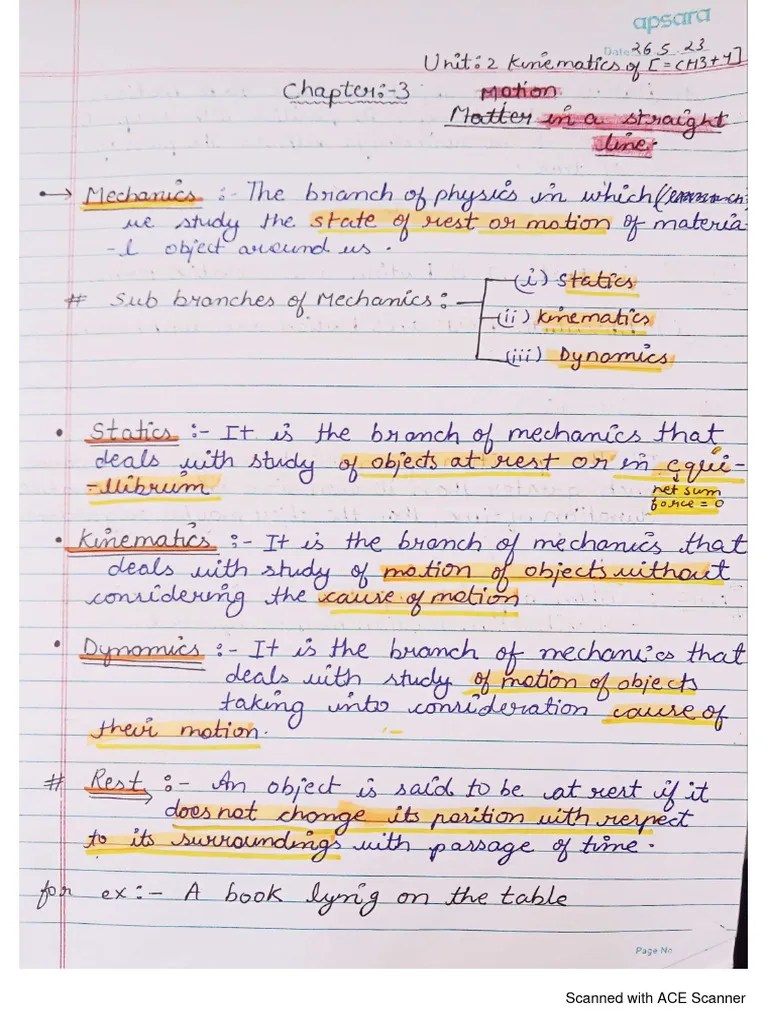 apsara
Date 26.5.23
Unit:2 Kinematics of [=CH3+4]
Chapter:-3 Motion
Matter in a straight
line.
•→ Mechanics :- The branch of physics in which
we study the state of rest or motion of materia
-l object around us.
# Sub branches of Mechanics:-
(i) Statics
(ii) Kinematics
(iii) Dynamics
• Statics :- It is the branch of mechanics that
deals with study of objects at rest or in equi-
-llibrum
net sum
force = 0
• Kinematics :- It is the branch of mechanics that
deals with study of motion of objects without
considering the cause of motion
• Dynamics :- It is the branch of mechanics that
deals with study of motion of objects
taking into consideration cause of
their motion.
# Rest :- An object is said to be at rest if it
does not change its position with respect
to its surroundings with passage of time.
for ex:- A book lynig on the table
Page No
Scanned with ACE Scanner